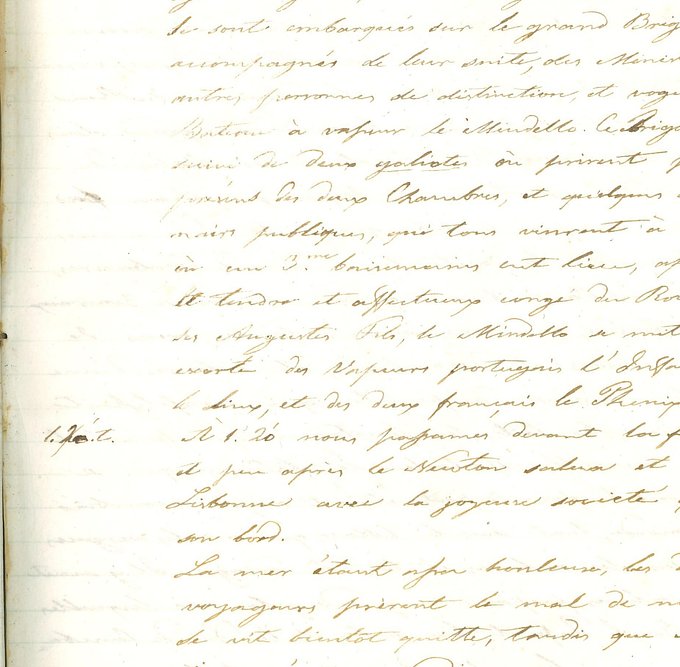 se sont embarqués sur le grand Brig
accompagnés de leur suite, des Minis
autres personnes de distinction, et vog
Bateau à vapeur le Mindello. Ce Briga
suivi de deux galiotes où prirent p
présens des deux Chambres, et quelques
naires publiques, qui tous vinrent à
où un 3.me baisemains eut lieu, ap
Et tendre et affectueux congé du Ro
ses Augustes Fils, le Mindello se met
escorté des Vapeurs portugais l'Infa
le Linx, et des deux français le Phenix
À 1.20 nous passames devant la f
et peu après le Newton salua et
Lisbonne avec la joyeuse societé
son bord.
La mer étant assez houleuse, les
voyageurs prirent le mal de m
se vit bientot quitte, tandis que